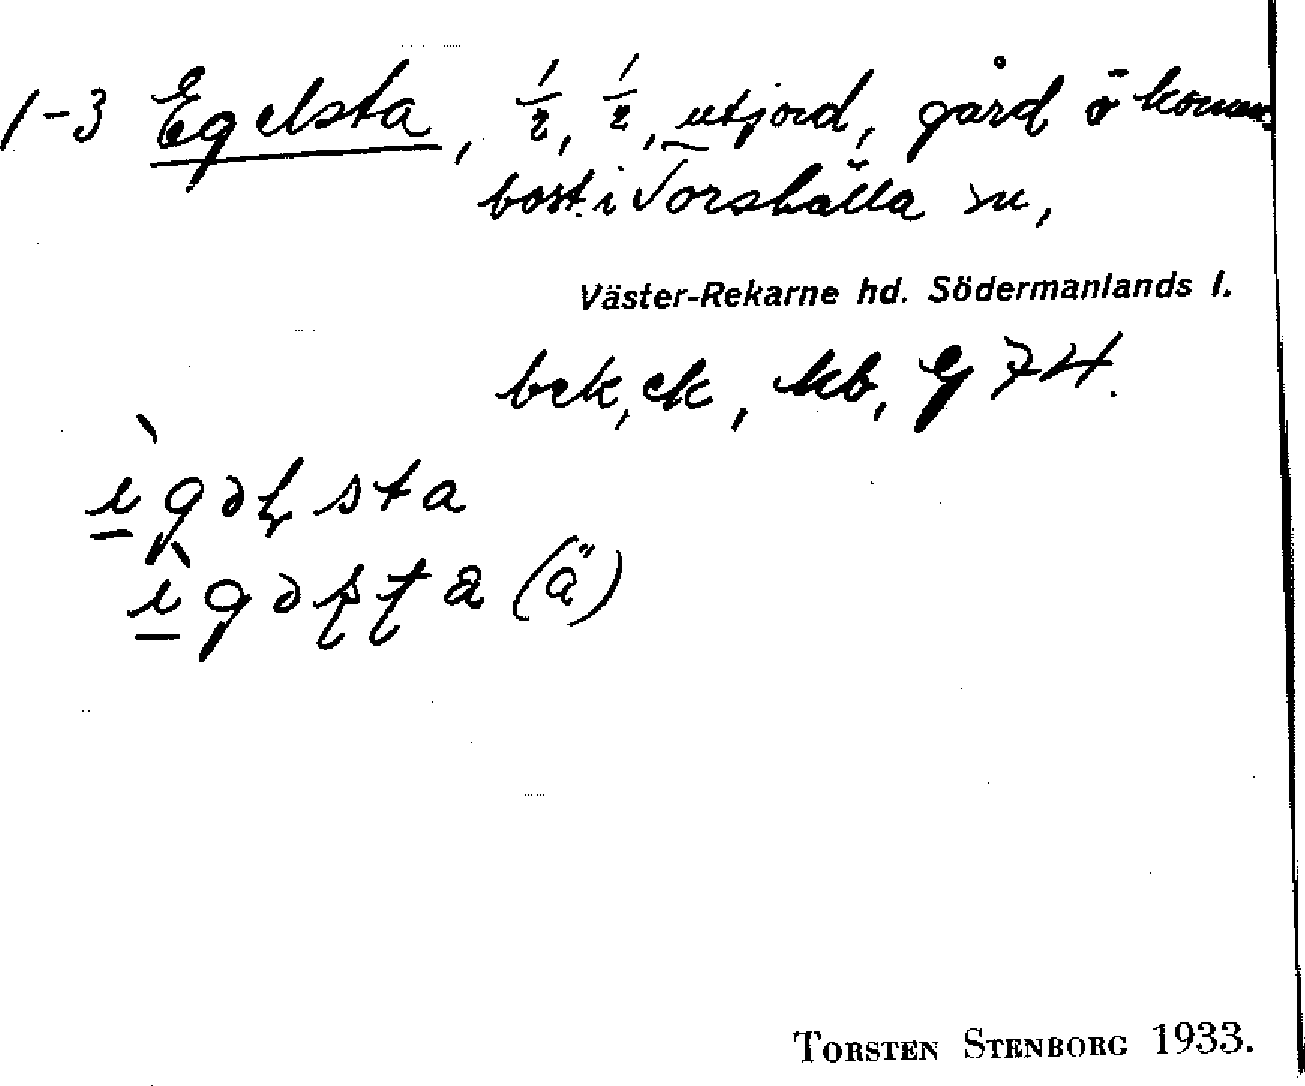 1-3 Egelsta, 1/2, 1/2, utjord, gård o komm.
bost. i Torshälla sn,
Väster-Rekarne hd. Södermanlands l.
bek, ek, kb, G 74.
ìgəḷsta
ìgəʂʈa (ä)
TORSTEN STENBORG 1933.